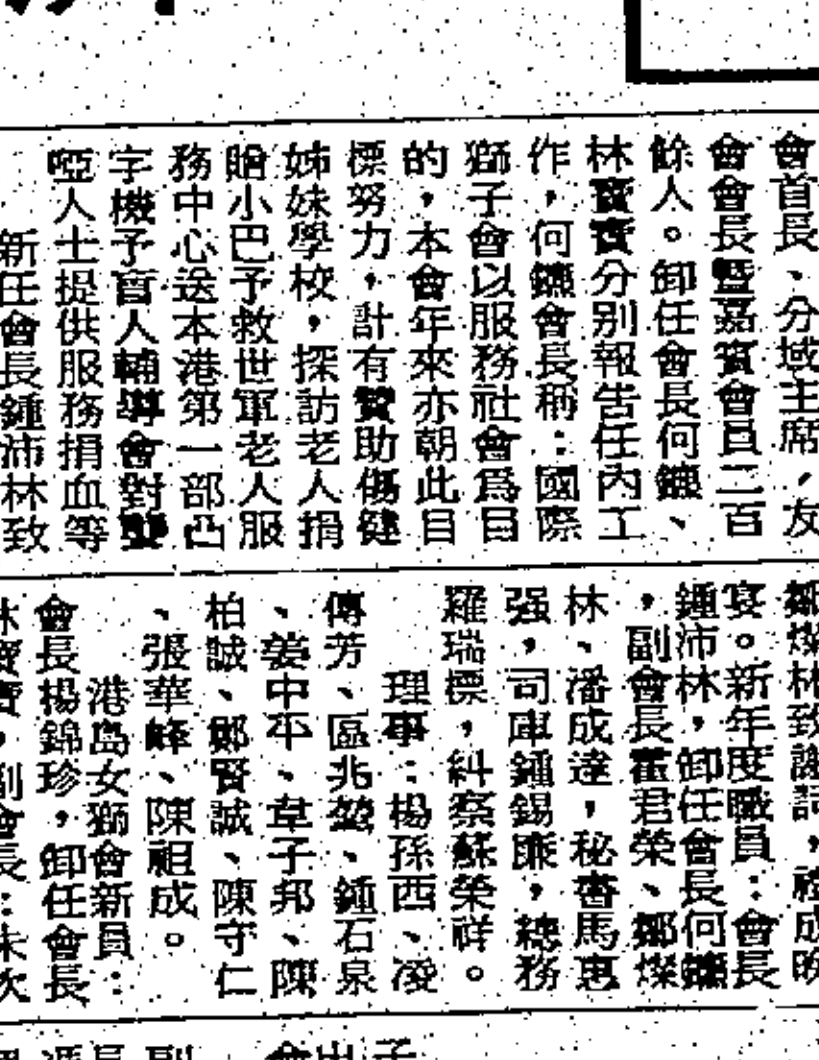 會首長、分域主席，友
會會長暨嘉賓會員二百
餘人。卸任會長何鑣、
林寶寶分别報告任內工
作，何鑣會長稱：國際
獅子會以服務社會爲目
的，本會年來亦朝此目
標努力，計有贊助傷健
姊妹學校，探訪老人捐
贈小巴予救世軍老人服
務中心送本港第一部凸
字機予盲人輔導會對聾
啞人士提供服務捐血等
新任會長鍾沛林致
鄒燦林致謝詞，禮成晚
宴。新年度職員：會長
鍾沛林，卸任會長何鑣
，副會長霍君榮、鄒燦
林、潘成達，秘書馬惠
强，司庫鍾錫廉，總務
羅瑞標，糾察蘇榮祥。
理事：楊孫西、凌
傅芳、區兆熒、鍾石泉
、姜中平、韋子邦、陳
柏誠、鄭賢誠、陳守仁
、張華峰、陳祖成。
港島女獅會新員：
會長楊錦珍，卸任會長
林寶寶，副會長：朱次